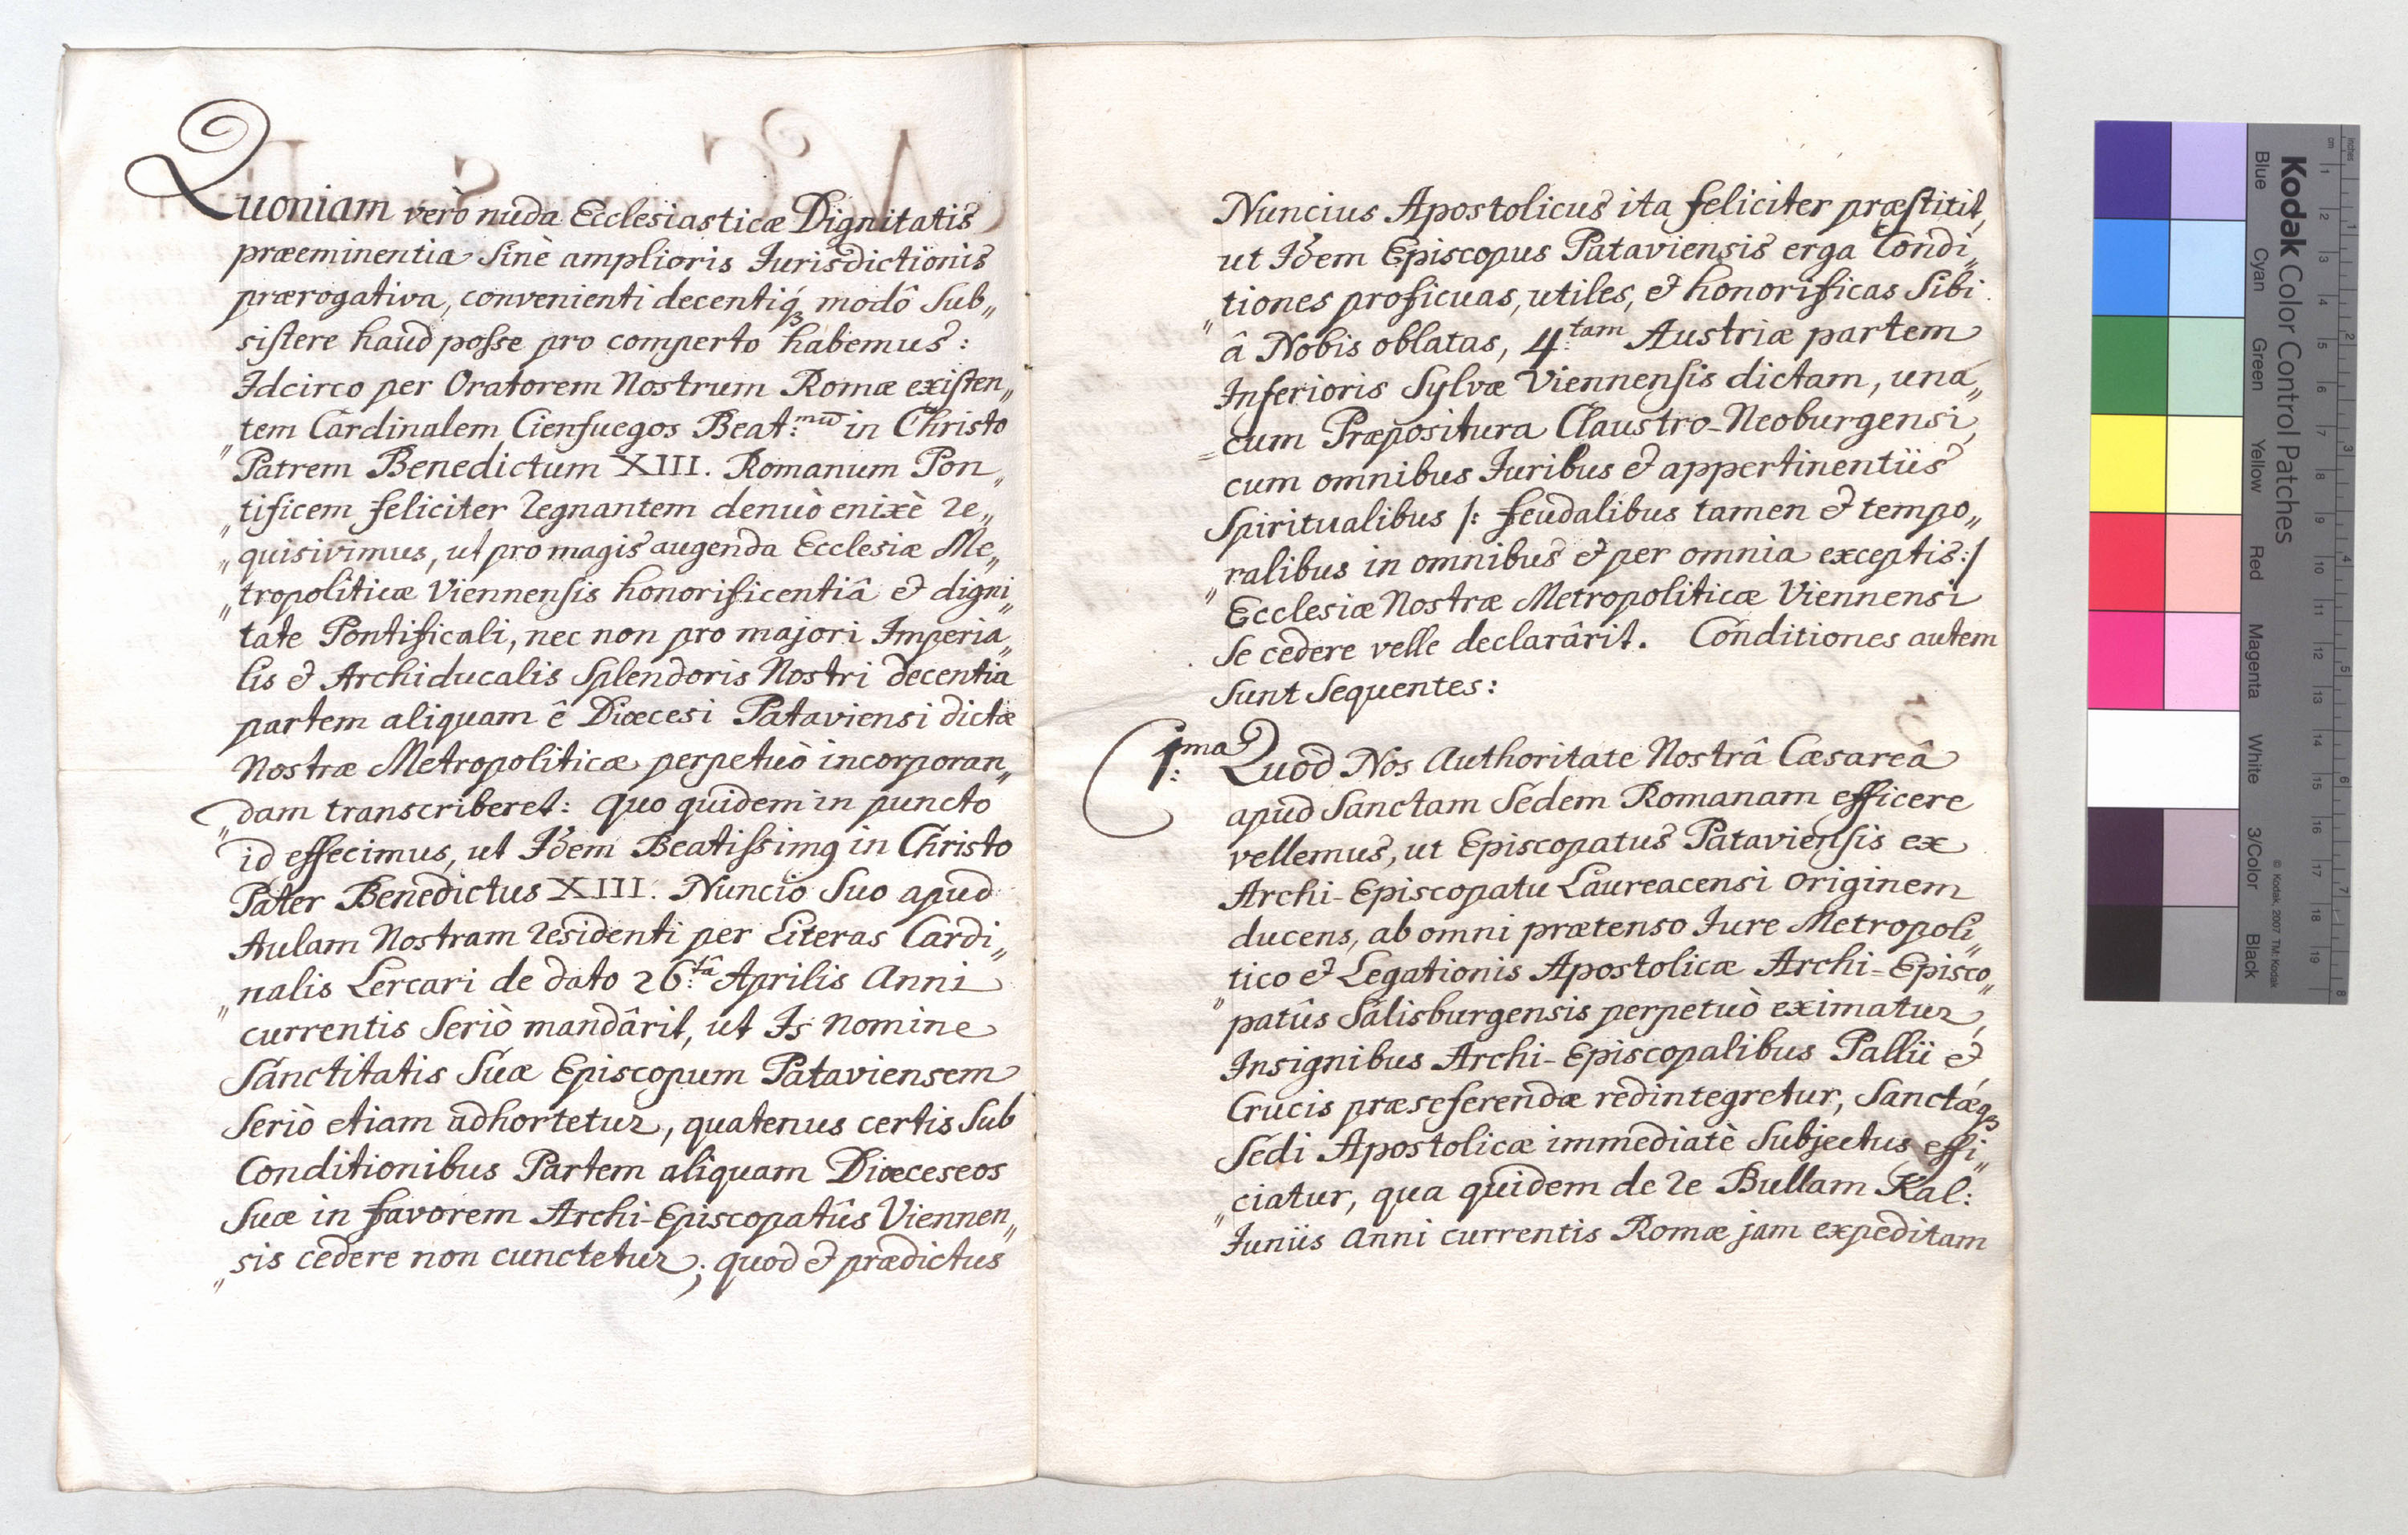 Quoniam verò nuda Ecclesiasticæ Dignitatis
præeminentia sinè amplioris Jurisdictionis
prærogativa, convenienti decentiq́₃ modô sub„
sistere haud posse pro comperto habemus:
Idcirco per Oratorem Nostrum Romæ existen„
„tem Cardinalem Cienfuegos Beat:mũ in Christo
Patrem Benedictum XIII. Romanum Pon„
„tificem feliciter regnantem denuò enixè re„
„quisivimus, ut pro magis augenda Ecclesiæ Me„
„tropoliticæ Viennensis honorificentiâ & digni„
tate Pontificali, nec non pro majori Imperia„
lis & Archiducalis Splendoris Nostri decentia
partem aliquam ê Diœcesi Pataviensi dictæ
Nostræ Metropoliticæ perpetuò incorporan„
„dam transcriberet: quo quidem in puncto
id effecimus, ut Idem Beatissimꝯ in Christo
Pater Benedictus XIII. Nuncio Suo apud
Aulam Nostram residenti per Literas Cardi„
„nalis Lercari de dato 26:tâ Aprilis Anni
currentis Seriò mandârit, ut Is nomine
Sanctitatis Suæ Episcopum Pataviensem
Seriò etiam adhortetur, quatenus certis sub
Conditionibus Partem aliquam Diœceseos
Suæ in favorem Archi-Episcopatûs Viennen„
„sis cedere non cunctetur; quod & prædictus
Nuncius Apostolicus ita feliciter præstitit,
ut Idem Episcopus Pataviensis erga Condi„
„tiones proficuas, utiles, & honorificas Sibi
â Nobis oblatas, 4:tam Austriæ partem
Inferioris Sylvæ Viennensis dictam, una„
„cum Præpositura Claustro-Neoburgensi,
cum omnibus Juribus & appertinentiis
Spiritualibus /: feudalibus tamen & tempo„
„ralibus in omnibus & per omnia exceptis:/
Ecclesiæ Nostræ Metropoliticæ Viennensi
Se cedere velle declarârit. Conditiones autem
Sunt Sequentes:
1:ma Quòd Nos Authoritate Nostrâ Cæsareâ
apud Sanctam Sedem Romanam efficere
vellemus, ut Episcopatus Pataviensis ex
Archi-Episcopatu Laureacensi originem
ducens, ab omni prætenso Jure Metropoli„
„tico & Legationis Apostolicæ Archi-Episco„
patûs Salisburgensis perpetuò eximatur,
Insignibus Archi-Episcopalibus Pallii &
Crucis præseferendæ redintegretur, Sanctæq́₃
Sedi Apostolicæ immediatè Subjectus effi„
„ciatur, qua quidem de re Bullam Kal:
Juniis Anni currentis Romæ jam expeditam
Kodak Color Control Patches
© Kodak, 2007 TM: Kodak
Blue Cyan Green Yellow Red Magenta White 3/Color Black
inches 1 2 3 4 5 6 7 8
cm 1 2 3 4 5 6 7 8 9 10 11 12 13 14 15 16 17 18 19